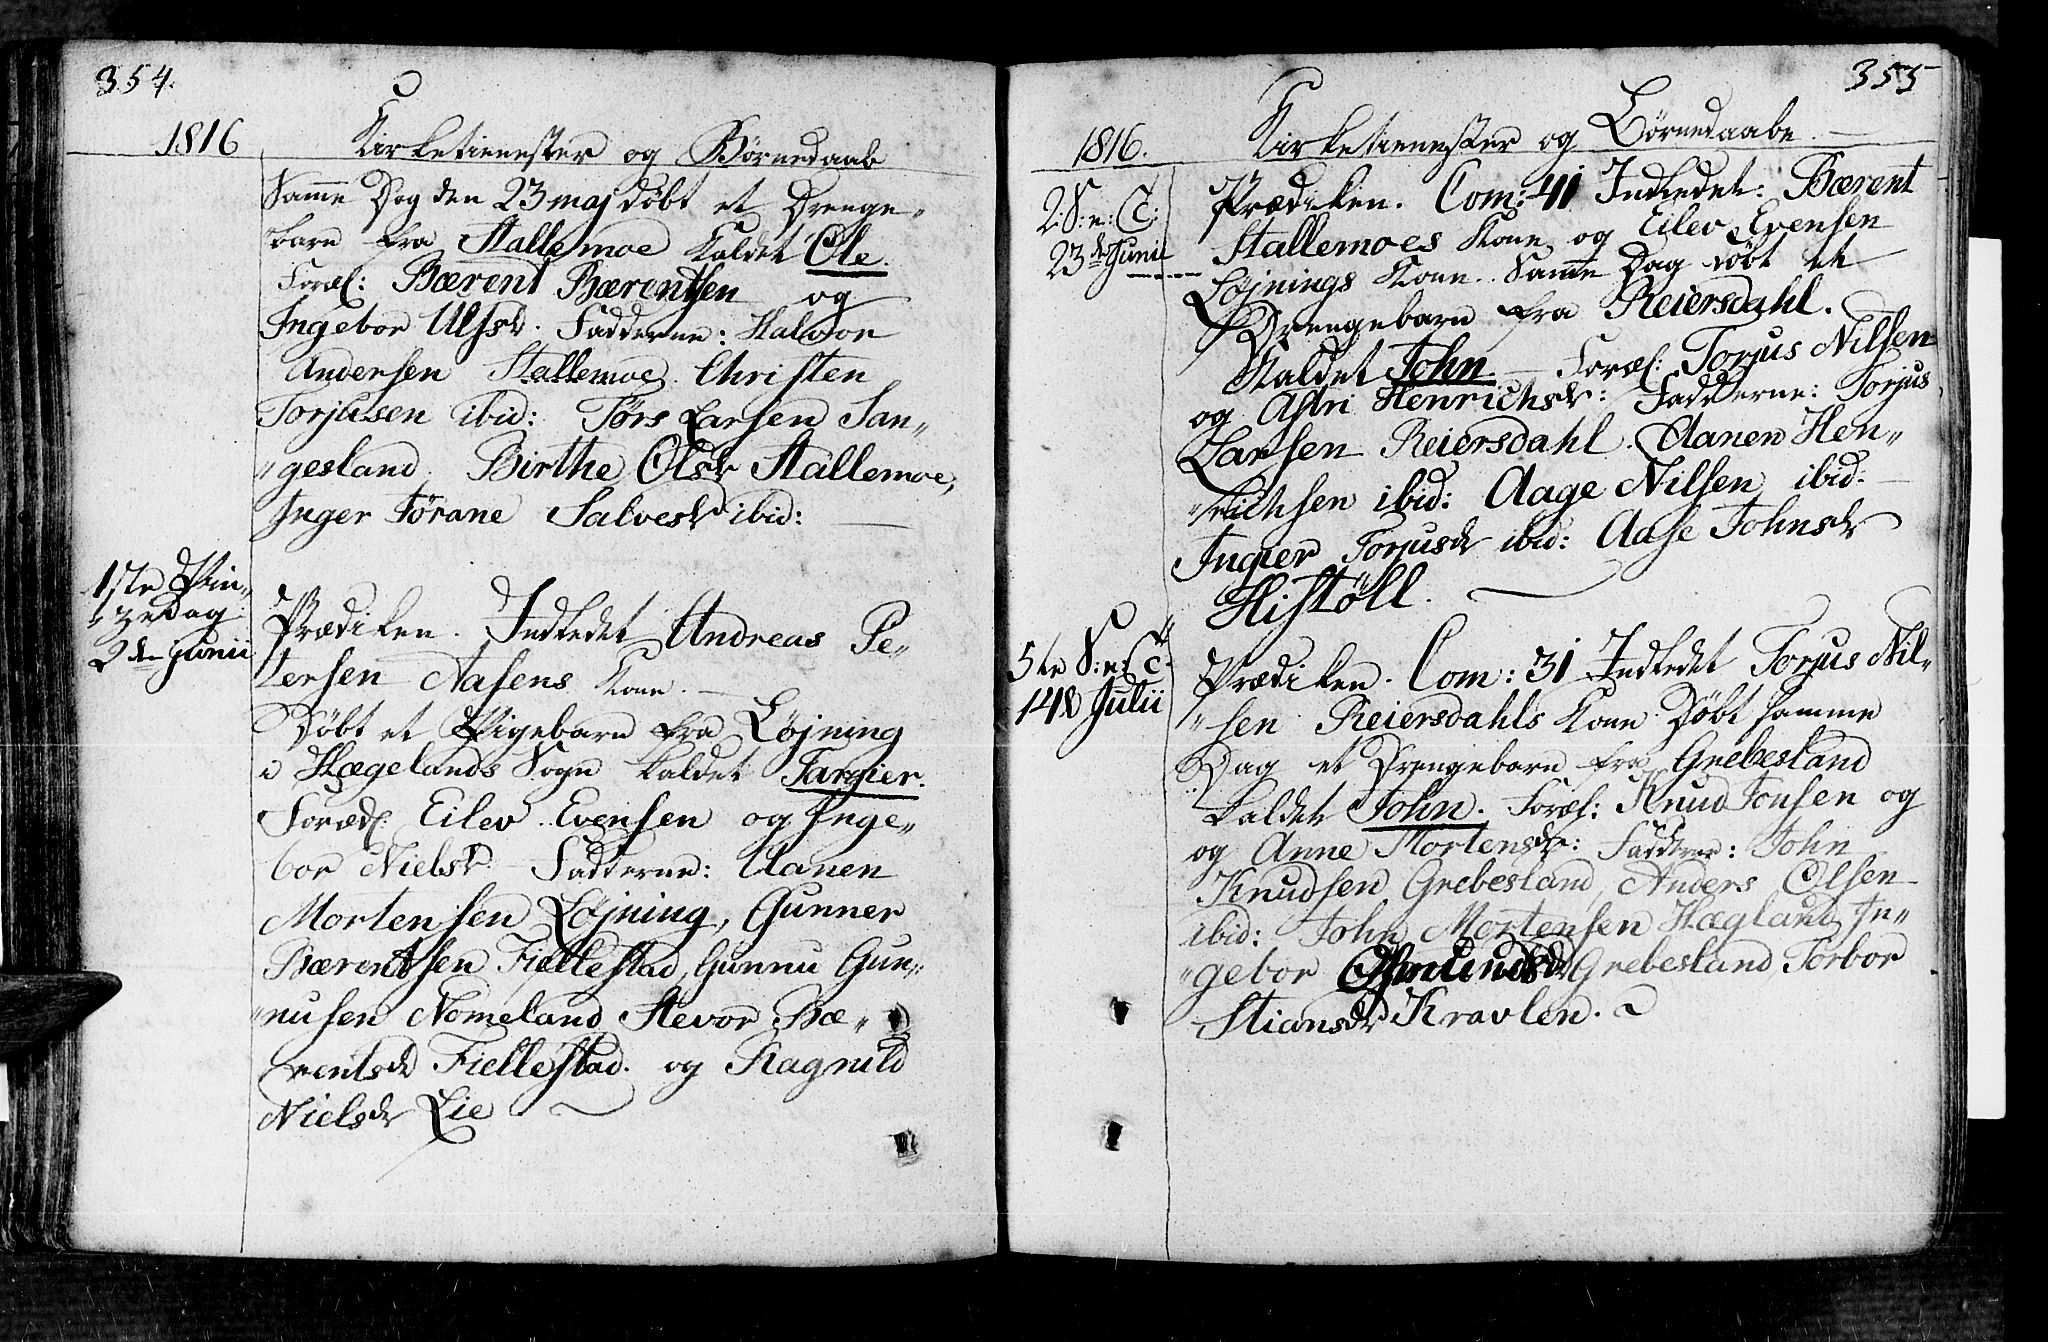 354.
1816
Kirketienester og Børnedaab
Samme Dag den 23 maj døbt et Drenge„
barn fra Stallemoe kaldet Ole.
Foræl: Bærent Bærentsen og
Ingebor Ulfsdr. Fadderne: Halvor
Andersen Stallemoe. Christen
Torjusen ibid: Tørs Larsen San„
„gesland. Birthe Olsdr Stallemoe,
Inger Torane Salvesdr ibid:
1ste Pin„
„zedag
2den Junii
Prædiken. Indledet Andreas Pe„
tersen Aasens Kone.
Døbt et Pigebarn fra Løjning
i Hægelands Sogn kaldet Targier.
Foræl: Eilev Evensen og Inge„
bor Nielsdr. Fadderne: Aanen
Mortensen Løjning, Gunner
Bærentsen Fiellestad, Gunnu Gun„
„nusen Nomeland Stevor Bæ„
rentsdr Fiellestad. og Ragnild
Nielsdr Lie
355
1816.
Kirketienester og Børnedaabe.
2:S:e:C:
23de Junii
Prædiken. Com: 41 Indledet: Bærent
Stallemoes Kone, og Eilev Evensen
Løjnings Kone. Samme Dag døbt et
Drengebarn fra Reiersdahl.
Kaldet John. Foræl: Torjus Nilsen
og Astri Henrichsdr: Fadderne: Torjus
Larsen Reiersdahl. Aanen Hen„
„richsen ibid: Aage Nilsen ibid:
Ingier Torjusdr ibid: Aase Johnsdr
Histöll.
5te S:e:C:
14d Julii
Prædiken. Com: 31 Indledet Torjus Nil„
„sen Reiersdahls Kone. Døbt samme
Dag et Drengebarn fra Grebesland
kaldet John. Foræl: Knud Jonsen og
og Anne Mortensdr: Fadderne: John
Knudsen Grebesland, Anders Olsen
ibid: John Mortensen Hægland In„
„gebor Osmundsdr Grebesland Torbor
Stiansdr Kravlen.